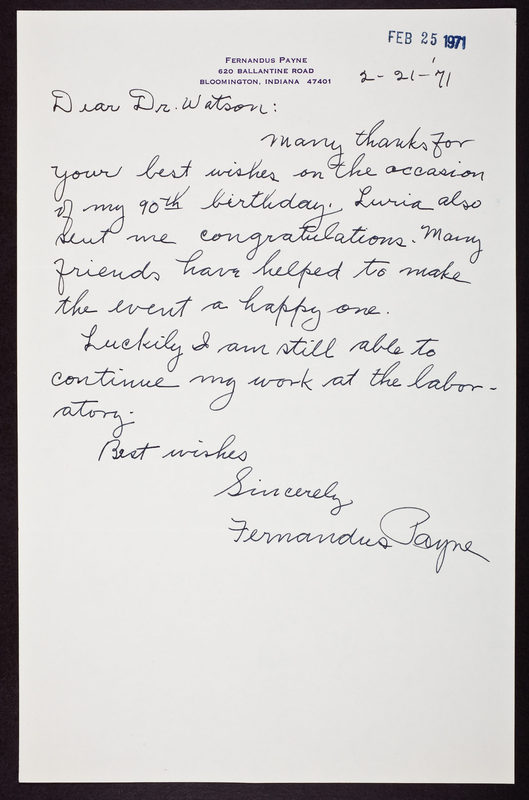 FEB 25 1971
FERNANDUS PAYNE
620 BALLANTINE ROAD
BLOOMINGTON, INDIANA 47401
2-21-'71
Dear Dr. Watson:
Many thanks for
your best wishes on the occasion
of my 90th birthday. Luria also
sent me congratulations. Many
friends have helped to make
the event a happy one.
Luckily I am still able to
continue my work at the labor-
atory.
Best wishes
Sincerely
Fernandus Payne